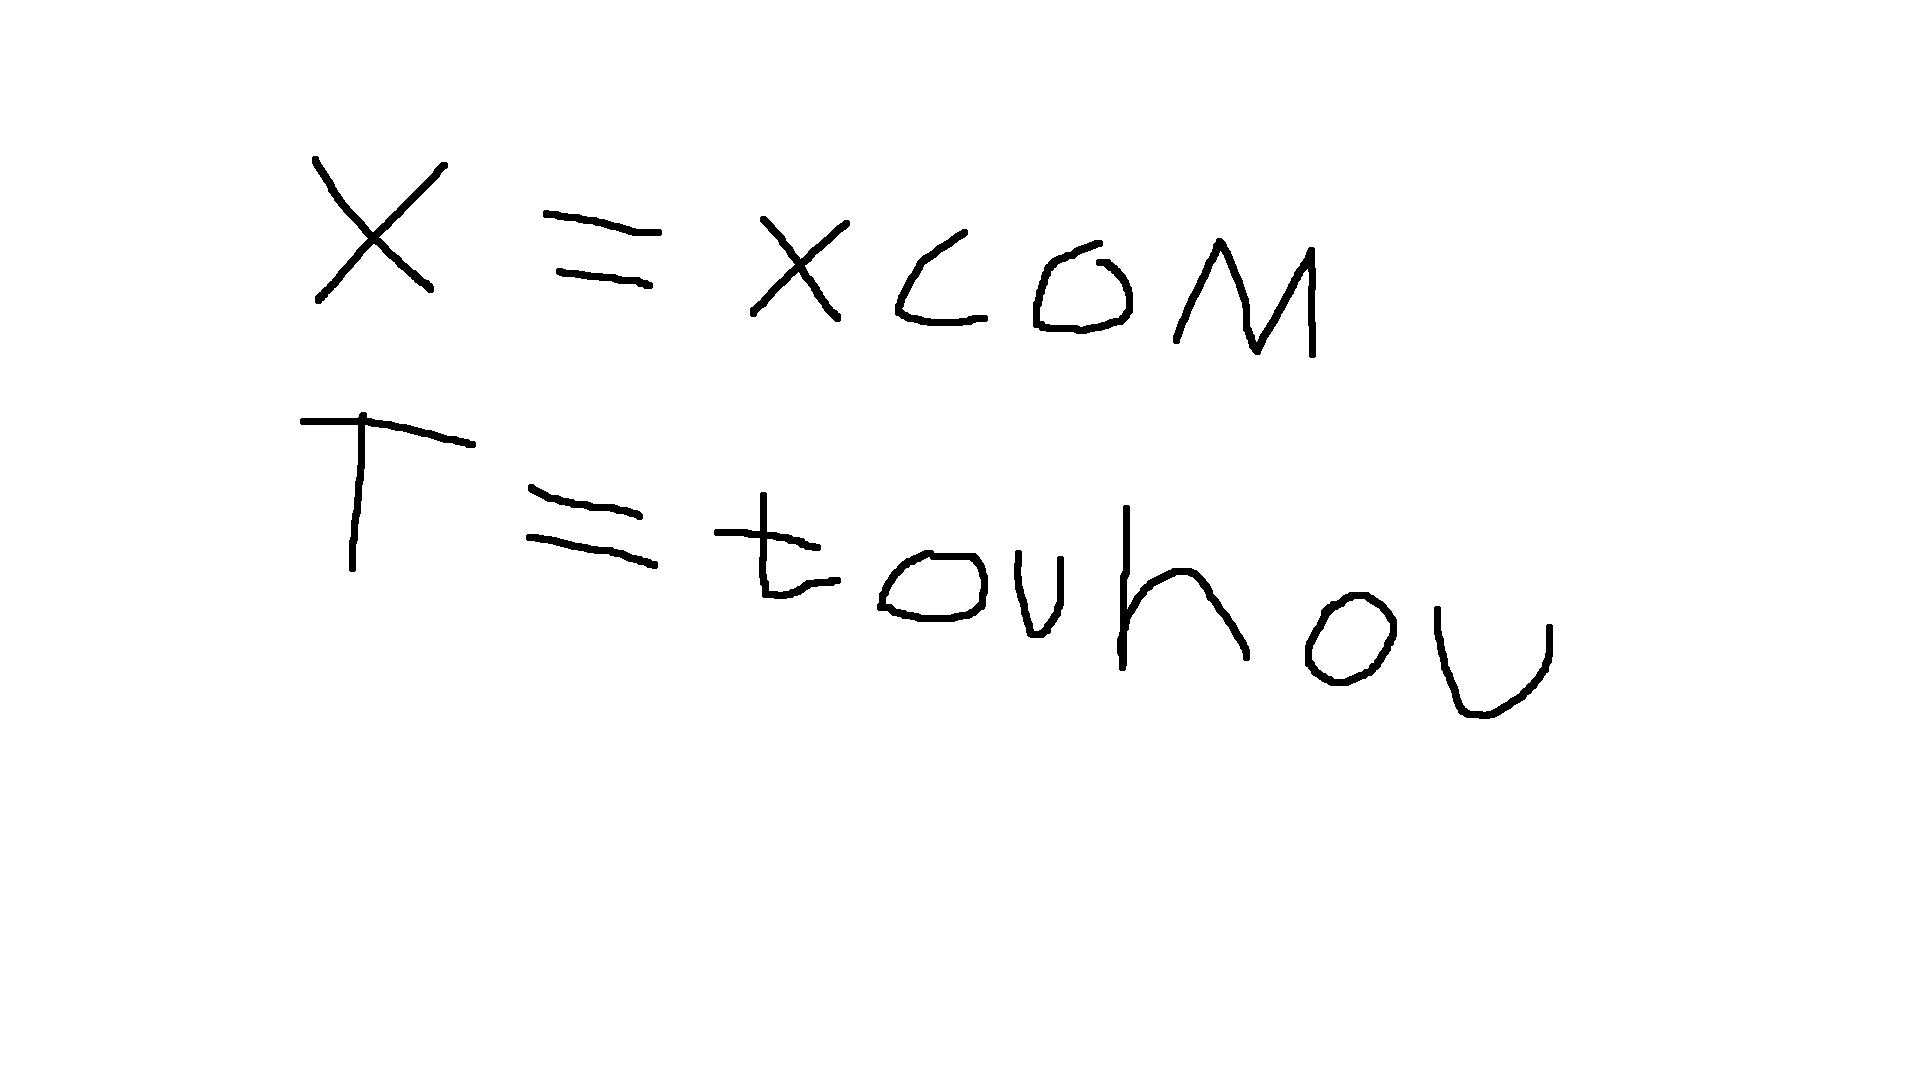 X = XCOM
T = touhou